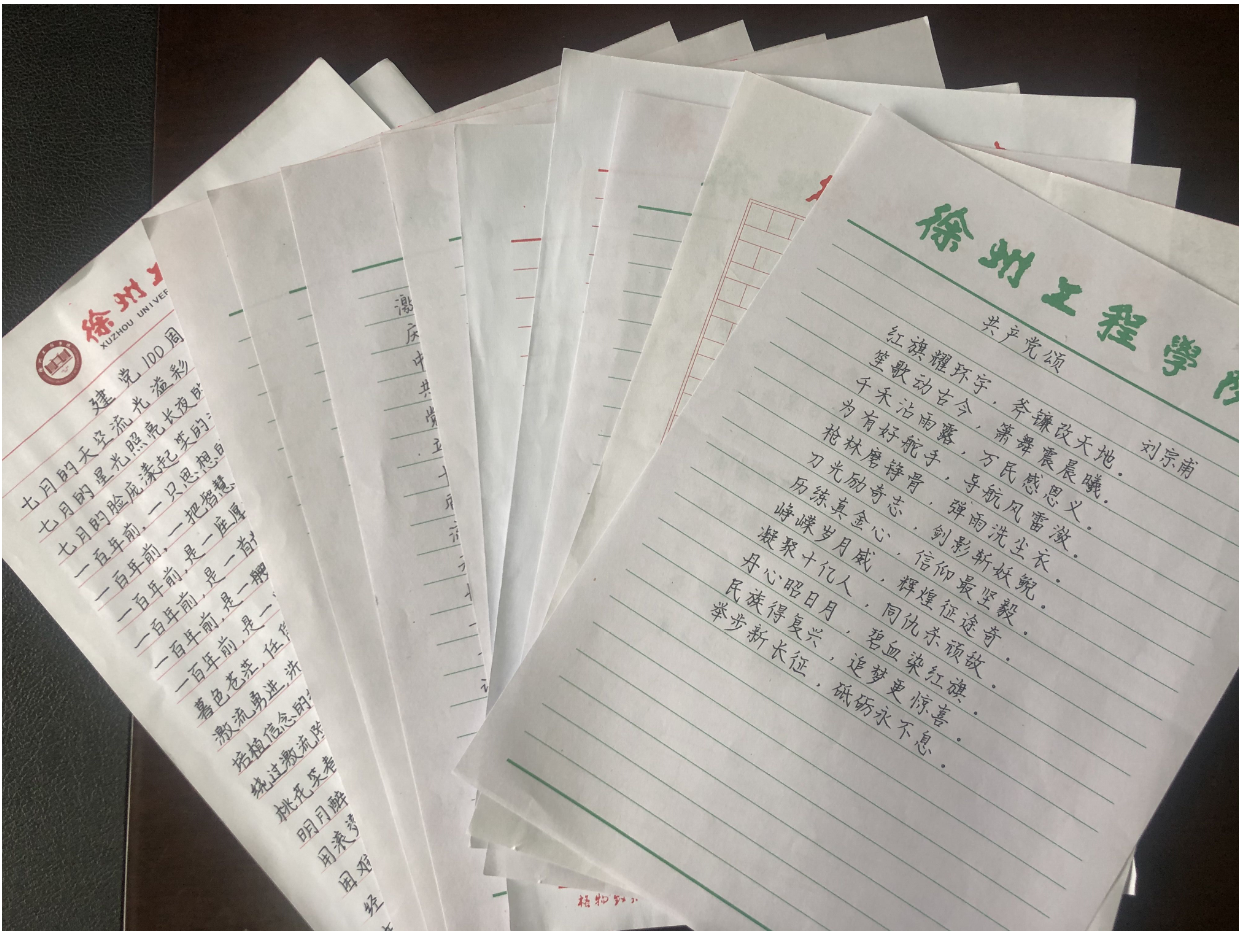 徐州工
XUZHOU UNIVER
建党100周
七月的天空流光溢彩
七月的星光照亮长夜
七月的脸庞漾起笑的
一百年前,一只思想的
一百年前,一把智慧
一百年前,是一座厚
一百年前,是一首
一百年前,是一艘
一百年前,是一
暮色苍茫,任
激流勇进,洗
培植信念的
绕过激流
桃花笑
明月醉
用滚
困难
经
激
庆
中
共
党
徐州工程學院
共产党颂
刘宗甫
红旗耀环宇,斧镰改天地。
笙歌动古今,箫舞震晨曦。
千禾沾雨露,万民感恩义。
为有好舵手,导航风雷激。
枪林磨铮骨,弹雨洗尘衣。
刀光励奇志,剑影斩妖鲵。
历练真金心,信仰最坚毅。
峥嵘岁月威,辉煌征途奇。
凝聚十亿人,同仇杀顽敌。
丹心昭日月,碧血染红旗。
民族得复兴,追梦更惊喜。
举步新长征,砥砺永不息。